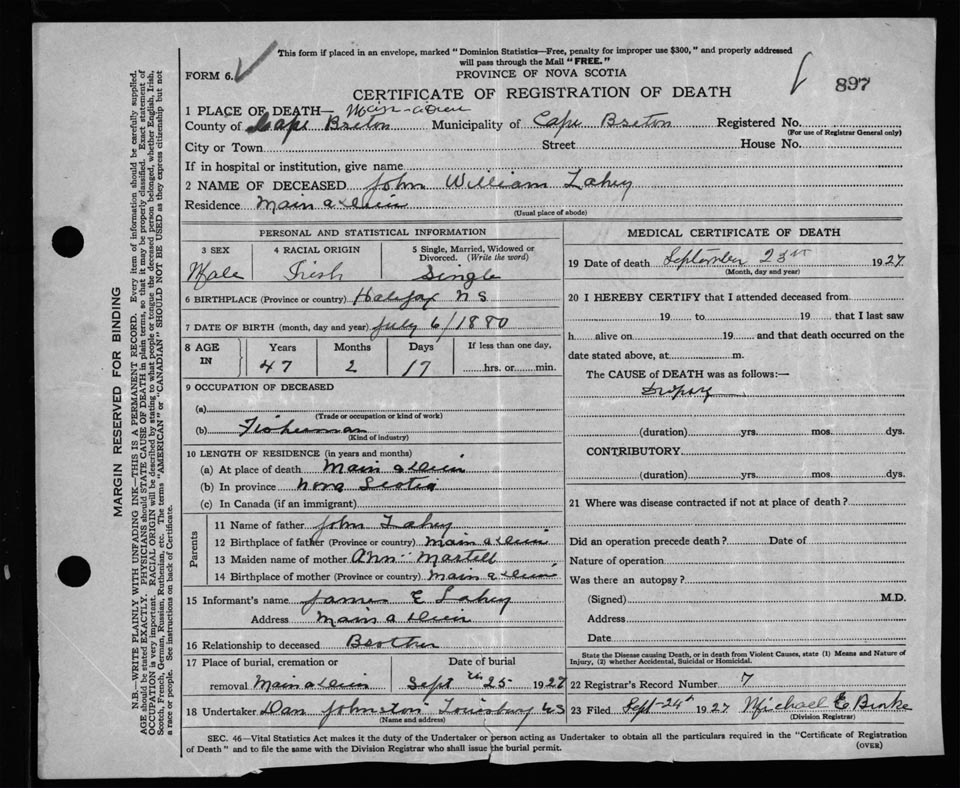 This form if placed in an envelope, marked "Dominion Statistics—Free, penalty for improper use $300," and properly addressed
will pass through the Mail "FREE."
FORM 6.
PROVINCE OF NOVA SCOTIA
897
CERTIFICATE OF REGISTRATION OF DEATH
1 PLACE OF DEATH— Main-a-Dieu
County of Cape Breton Municipality of Cape Breton Registered No.
(For use of Registrar General only)
City or Town Street House No.
If in hospital or institution, give name
2 NAME OF DECEASED John William Lahey
Residence Main a Dieu
(Usual place of abode)
PERSONAL AND STATISTICAL INFORMATION
3 SEX 4 RACIAL ORIGIN 5 Single, Married, Widowed or
Divorced. (Write the word)
Male Irish Single
6 BIRTHPLACE (Province or country) Halifax N S
7 DATE OF BIRTH (month, day and year) July 6/1880
8 AGE IN Years Months Days If less than one day,
47 2 17 hrs. or min.
9 OCCUPATION OF DECEASED
(a)
(Trade or occupation or kind of work)
(b) Fisherman
(Kind of industry)
10 LENGTH OF RESIDENCE (in years and months)
(a) At place of death Main a Dieu
(b) In province Nova Scotia
(c) In Canada (if an immigrant)
Parents
11 Name of father John Lahey
12 Birthplace of father (Province or country) Main a Dieu
13 Maiden name of mother Ann Martell
14 Birthplace of mother (Province or country) Main a Dieu
15 Informant's name James E Lahey
Address Main a Dieu
16 Relationship to deceased Brother
17 Place of burial, cremation or Date of burial
removal Main a Dieu Sept 25th 1927
18 Undertaker Dan Johnston Louisburg
(Name and address)
MEDICAL CERTIFICATE OF DEATH
19 Date of death September 23rd 1927
(Month, day and year)
20 I HEREBY CERTIFY that I attended deceased from
19 to 19 that I last saw
h alive on 19 and that death occurred on the
date stated above, at m.
The CAUSE of DEATH was as follows:—
Dropsy
(duration) yrs. mos. dys.
CONTRIBUTORY.
(duration) yrs. mos. dys.
21 Where was disease contracted if not at place of death?
Did an operation precede death? Date of
Nature of operation
Was there an autopsy?
(Signed) M.D.
Address
Date
State the Disease causing Death, or in death from Violent Causes, state (1) Means and Nature of
Injury, (2) whether Accidental, Suicidal or Homicidal.
22 Registrar's Record Number 7
23 Filed Sept-24th 1927 Michael E Burke
(Division Registrar)
SEC. 46—Vital Statistics Act makes it the duty of the Undertaker or person acting as Undertaker to obtain all the particulars required in the "Certificate of Registration
of Death" and to file the same with the Division Registrar who shall issue the burial permit.
(OVER)
MARGIN RESERVED FOR BINDING
N.B.—WRITE PLAINLY WITH UNFADING INK—THIS IS A PERMANENT RECORD. Every item of information should be carefully supplied.
AGE should be stated EXACTLY. PHYSICIANS should STATE CAUSE OF DEATH in plain terms, so that it may be properly classified. Exact statement of
OCCUPATION is very important. RACIAL ORIGIN will be described by stating to what people or tongue the deceased person belonged, whether English, Irish,
Scotch, French, German, Russian, Ruthenian, etc. The terms "AMERICAN" or "CANADIAN" SHOULD NOT BE USED as they express citizenship but not
a race or people. See instructions on back of Certificate.